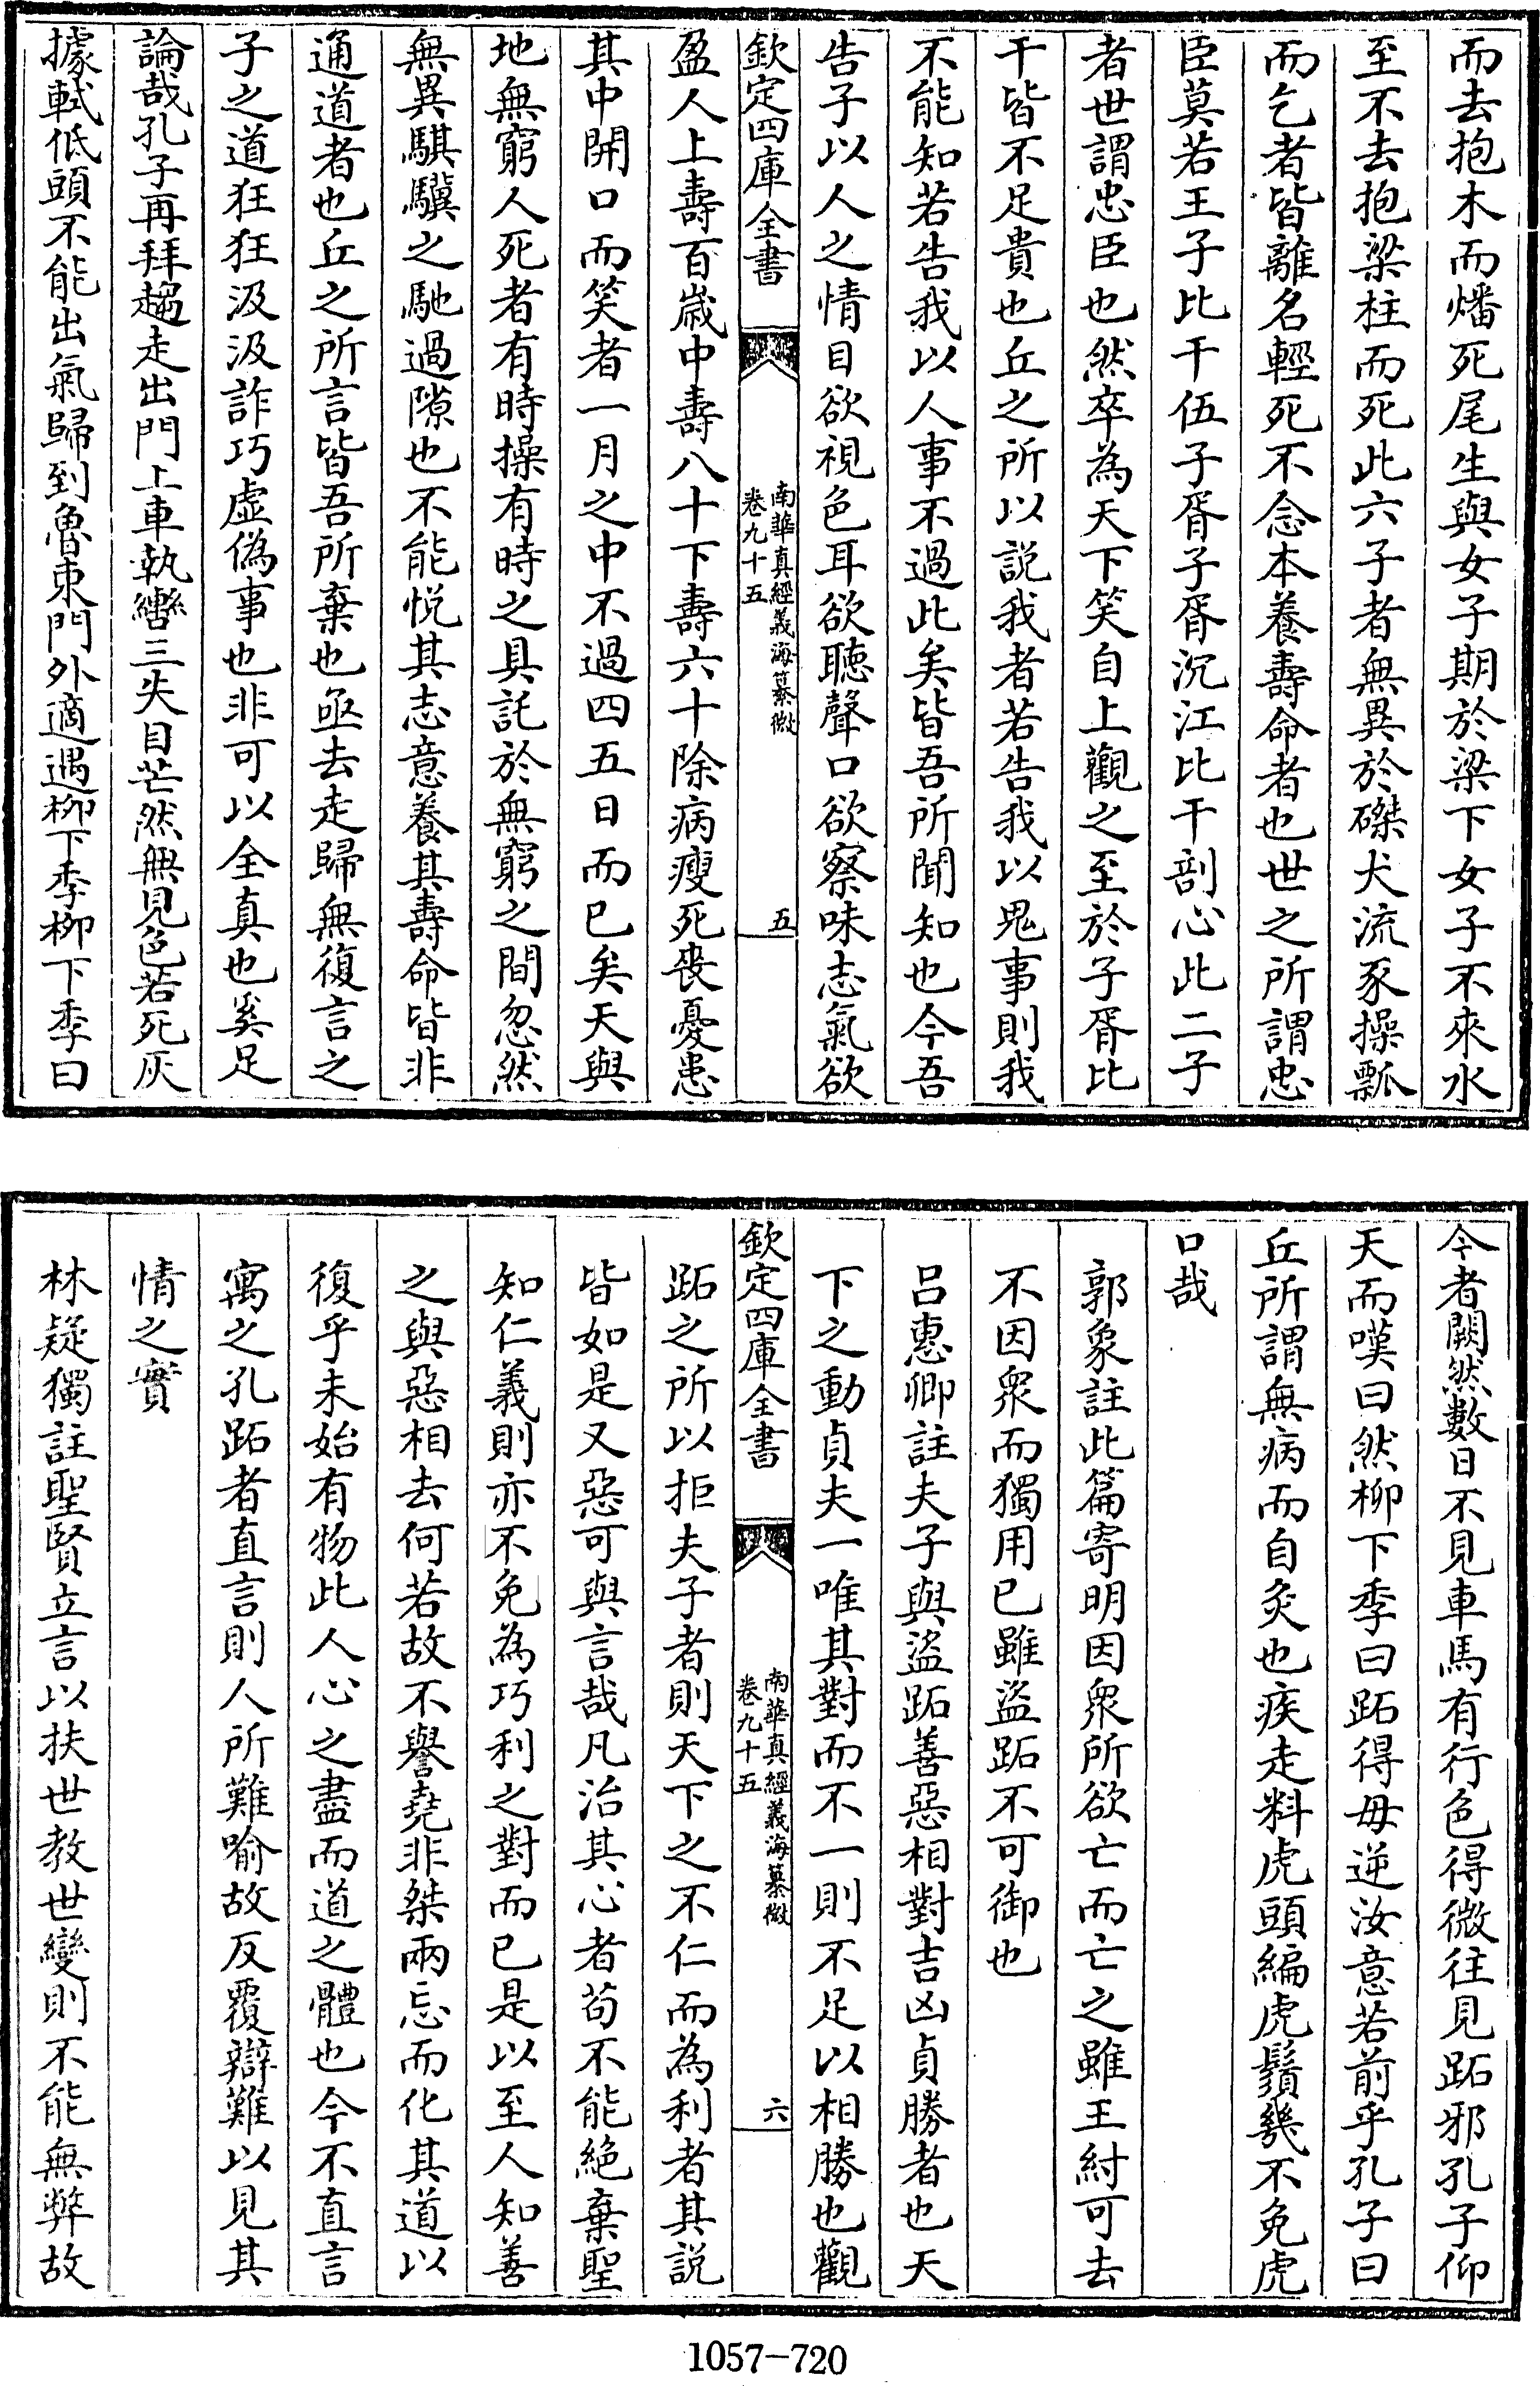 而去抱木而燔死尾生與女子期於梁下女子不來水
至不去抱梁柱而死此六子者無異於磔犬流豕操瓢
而乞者皆離名輕死不念本養壽命者也世之所謂忠
臣莫若王子比干伍子胥子胥沉江比干剖心此二子
者世謂忠臣也然卒為天下笑自上觀之至於子胥比
干皆不足貴也丘之所以説我者若告我以鬼事則我
不能知若告我以人事不過此矣皆吾所聞知也今吾
告子以人之情目欲視色耳欲聴聲口欲察味志氣欲
欽定四庫全書
南華真經義海纂微
卷九十五
五
盈人上壽百嵗中壽八十下壽六十除病瘦死喪憂患
其中開口而笑者一月之中不過四五日而已矣天與
地無窮人死者有時操有時之具託於無窮之間忽然
無異騏驥之馳過隙也不能悅其志意養其壽命皆非
通道者也丘之所言皆吾所棄也亟去走歸無復言之
子之道狂狂汲汲詐巧虛偽事也非可以全真也奚足
論哉孔子再拜趨走出門上車執轡三失目芒然無見色若死灰
據軾低頭不能出氣歸到魯東門外適遇柳下季柳下季曰
今者闕然數日不見車馬有行色得微往見跖邪孔子仰
天而嘆曰然柳下季曰跖得毋逆汝意若前乎孔子曰
丘所謂無病而自灸也疾走料虎頭編虎鬚幾不免虎
口哉
郭象註此篇寄明因衆所欲亡而亡之雖王紂可去
不因衆而獨用已雖盜跖不可御也
吕惠卿註夫子與盜跖善惡相對吉凶貞勝者也天
下之動貞夫一唯其對而不一則不足以相勝也觀
欽定四庫全書
南華真經義海纂微
卷九十五
六
跖之所以拒夫子者則天下之不仁而為利者其説
皆如是又惡可與言哉凡治其心者苟不能絶棄聖
知仁義則亦不免為巧利之對而已是以至人知善
之與惡相去何若故不譽堯非桀兩忘而化其道以
復乎未始有物此人心之盡而道之體也今不直言
寓之孔跖者直言則人所難喻故反覆辯難以見其
情之實
林疑獨註聖賢立言以扶世教世變則不能無弊故
1057-720